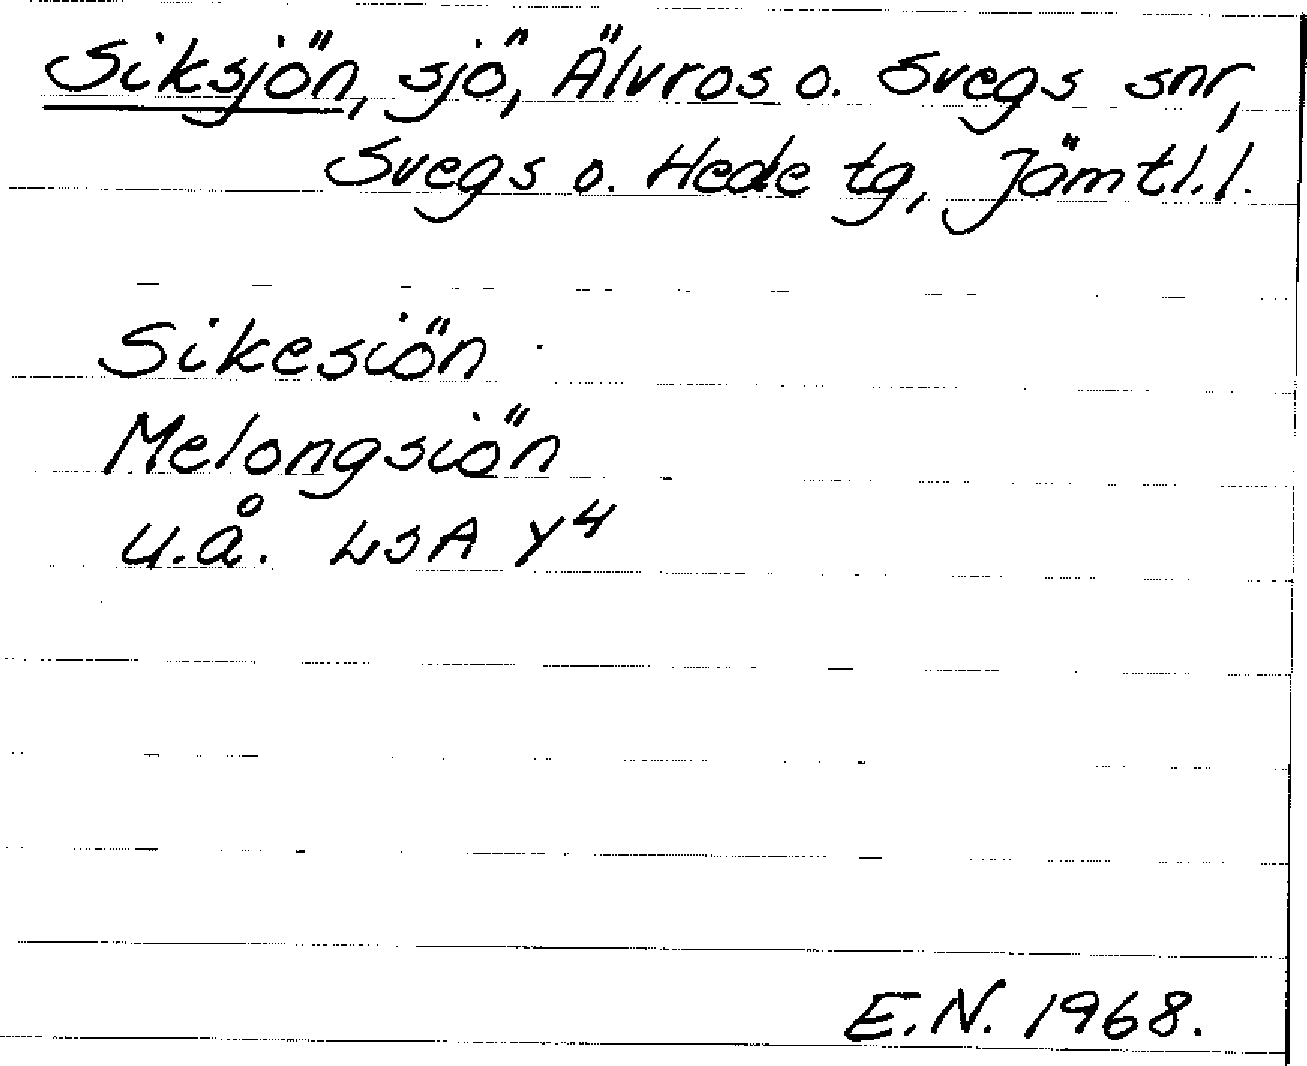 Siksjön, sjö, Älvros o. Svegs snr,
Svegs o. Hede tg, Jämtl.l.
Sikesiön
Melongsiön
u.å. LSA Y4
E.N. 1968.